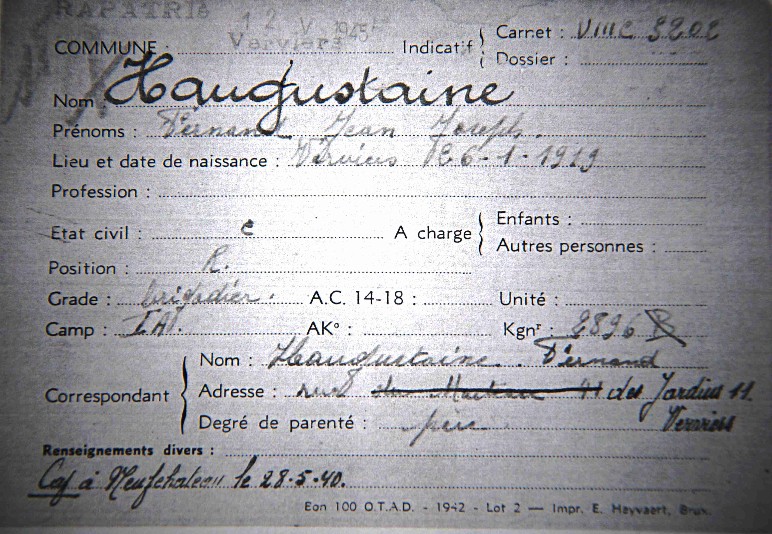 RAPATRIÉ
12 V 1945
Verviers
COMMUNE : Indicatif Carnet : VIIIC 3202
Dossier :
Nom : Haugustaine
Prénoms : Fernand Jean Joseph.
Lieu et date de naissance : Verviers 26-1-1919
Profession :
Etat civil : c A charge Enfants :
Autres personnes :
Position : R.
Grade : brigadier. A.C. 14-18 : Unité :
Camp : IA. AKº : Kgnʳ : 2896 B
Correspondant Nom : Haugustaine. Fernand
Adresse : rue des Jardins 11.
Verviers
Degré de parenté : père
Renseignements divers :
Caf à Neufchateau le 28-5-40.
Eon 100 O.T.A.D. - 1942 - Lot 2 — Impr. E. Hayvaert, Brux.